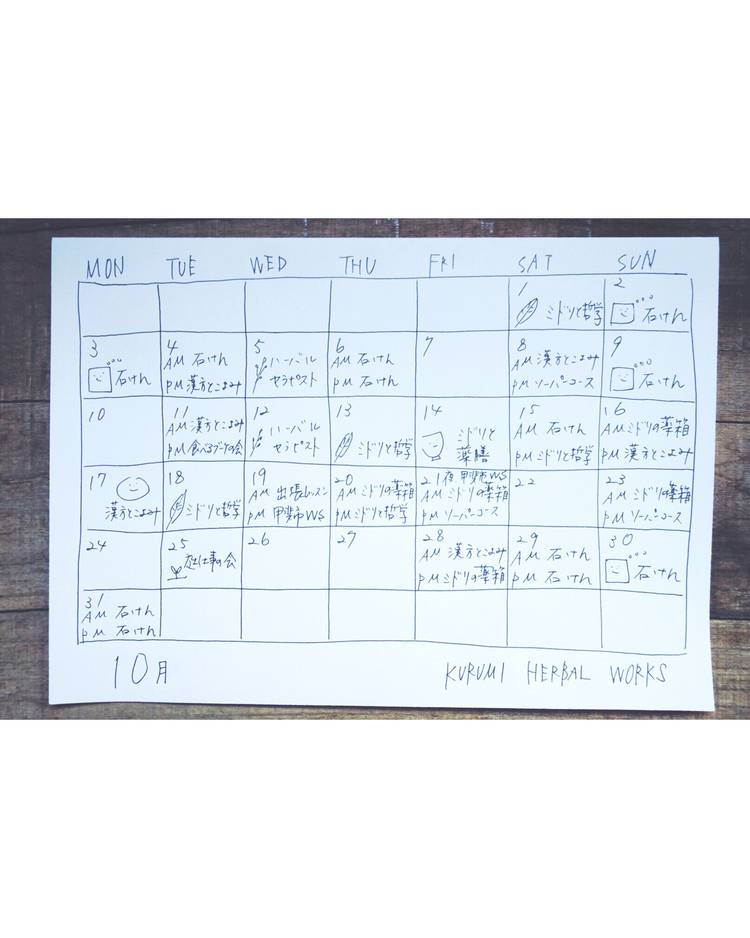 MON TUE WED THU FRI SAT SUN
1
ミドリと哲学
2
石けん
3
石けん
4
AM 石けん
PM 漢方とこよみ
5
ハーバル
セラピスト
6
AM 石けん
PM 石けん
7
8
AM 漢方とこよみ
PM ソーパーコース
9
石けん
10
11
AM 漢方とこよみ
PM 食べるブーケの会
12
ハーバル
セラピスト
13
ミドリと哲学
14
ミドリと
薬膳
15
AM 石けん
PM ミドリと哲学
16
AM ミドリの薬箱
PM 漢方とこよみ
17
漢方とこよみ
18
ミドリと哲学
19
AM 出張レッスン
PM 甲斐市WS
20
AM ミドリの薬箱
PM ミドリと哲学
21 夜 甲斐市WS
AM ミドリの薬箱
PM ソーパーコース
22
23
AM ミドリの薬箱
PM ソーパーコース
24
25
仕事の会
26
27
28
AM 漢方とこよみ
PM ミドリの薬箱
29
AM 石けん
PM 石けん
30
石けん
31
AM 石けん
PM 石けん
10月
KURUMI HERBAL WORKS